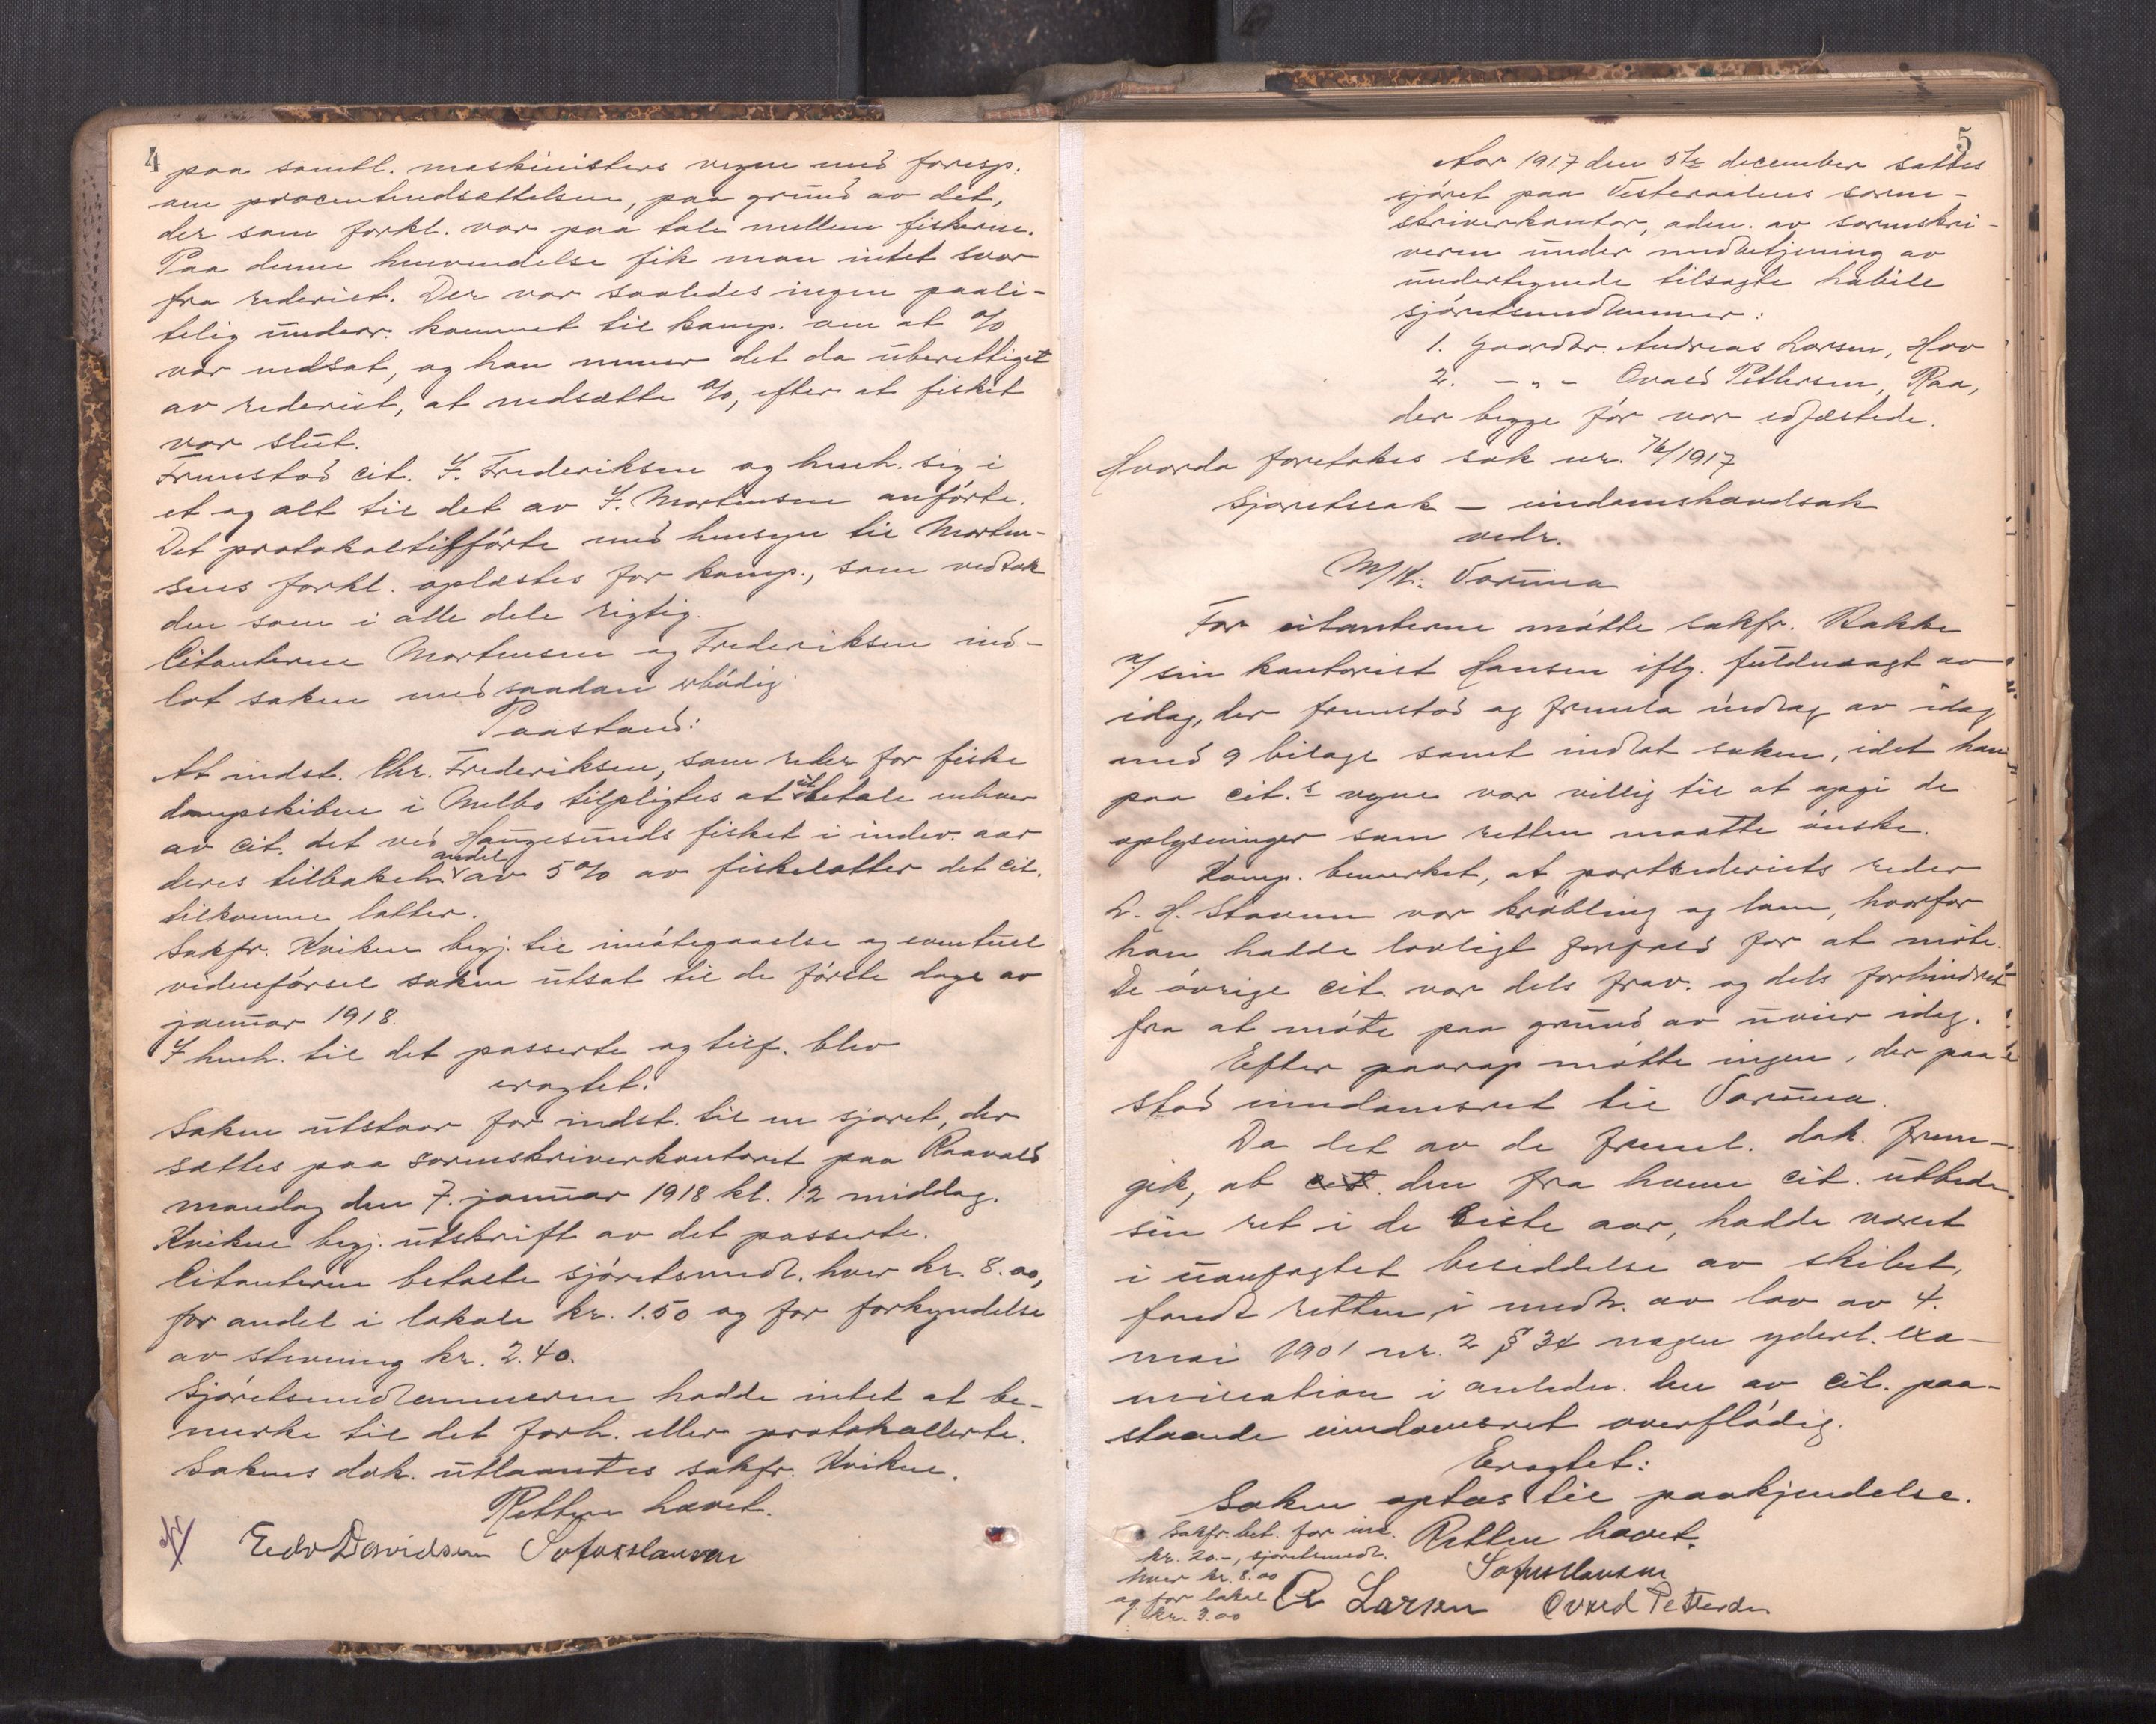 4
paa samtl. maskinisters vegne med foresp.
om procentnedsættelsen, paa grund av det,
der som forkl. var paa tale mellem fiskerne.
Paa denne henvendelse fik man intet svar
fra rederiet. Der var saaledes ingen paali-
telig underr. kommet til komp. om at %
var nedsat, og han mener det da uberettiget
av rederiet, at nedsætte %, efter at fisket
var slut.
Fremstod cit. F. Frederiksen og henh. sig i
et og alt til det av F. Mortensen anførte.
Det protokoltilførte med hensyn til Morten-
sens forkl. oplæstes for komp., som vedtok
den som i alle dele rigtig.
Citanterne Mortensen og Frederiksen ind-
lot saken med saadan ærbødig
Paastand:
At indst. Chr. Frederiksen, som reder for fiske
dampskibene i Melbo tilpligtes at utbetale enhver
av cit. det ved Haugesunds fisket i indev. aar
deres tilbakeh. andel av 5% av fiskelotter det cit.
tilkomne lotter.
Sakfr. Kvikne begj. til imøtegaaelse og eventuel
vidneførsel saken utsat til de første dage av
januar 1918.
I henh. til det passerte og tilf. blev
eragtet:
Saken utstaar for indst. til en sjøret, der
sættes paa sorenskriverkontoret paa Raavald
mandag den 7. januar 1918 kl. 12 middag.
Kvikne begj. utskrift av det passerte.
Citanterne betalte sjøretsmedl. hver kr. 8.00,
for andel i lokale kr. 1.50 og for forkyndelse
av stevning kr. 2.40.
Sjøretsmedlemmerne hadde intet at be-
merke til det forh. eller protokollerte.
Sakens dok. utlaantes sakfr. Kvikne.
Retten hævet.
Edv Davidsen Sofus Hansen
5
Aar 1917 den 5te december sattes
sjøret paa Vesteraalens soren-
skriverkontor, adm. av sorenskri-
veren under medbetjening av
undertegnede tilsagte habile
sjøretsmedlemmer:
1. Gaardbr. Andreas Larsen, Hov
2. - " - Ovald Pettersen, Raa,
der begge før var edfæstede.
Hvorda foretokes sak nr. 76/1917
Sjøretssak - eiendomshævdsak
vedr.
M/K. Varuna
For citanterne møtte sakfr. Bakke
v/ sin kontorist Hansen iflg. fuldmagt av
idag, der fremstod og fremla indlæg av idag
med 9 bilage samt indlot saken, idet han
paa cit.s vegne var villig til at opgi de
oplysninger som retten maatte ønske.
Komp. bemerket, at partrederiets reder
L. H. Stavnen var krøbling og lam, hvorfor
han hadde lovligt forfald for at møte.
De øvrige cit. var dels frav. og dels forhindret
fra at møte paa grund av uveir idag.
Efter paarop møtte ingen, der paa-
stod eiendomsret til Varuna.
Da det av de freml. dok. frem-
gik, at den fra hvem cit. utleder
sin ret i de siste aar, hadde været
i uanfægtet besiddelse av skibet,
fandt retten i medh. av lov av 4.
mai 1901 nr. 2 § 34 nogen yderl. exa-
mination i anledn. den av cit. paa-
staaede eiendomsret overflødig.
Eragtet:
Saken optas til paakjendelse.
Retten hævet.
Sakfr. bet. for ink.
kr. 20.-, sjøretsmedl.
hver kr. 8.00
og for lokale
kr. 3.00
Sofus Hansen
A Larsen Ovald Pettersen